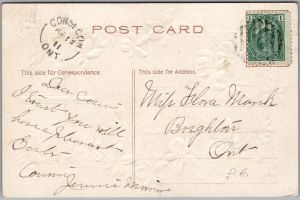 CONSECON
AP 13
11
ONT.
POST CARD
1
This side for Correspondence.
This side for Address.
Dear Cousin
I trust you will
have a pleasant
Easter
Cousin
Jennie
Miss Flora Marsh
Brighton
Ont